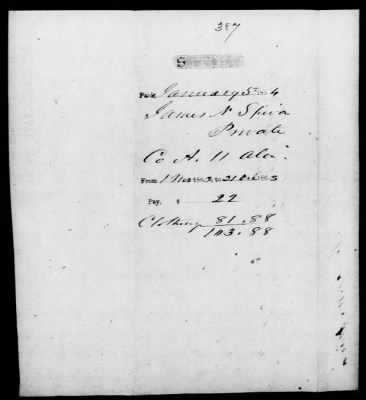 387
Paid January 5th 1864
James N Shiva
Private
Co A. 11 Ala.
From 1 Nov 1863, to 31 Dec 1863
Pay, $ 22
Clothing 81.88
103.88